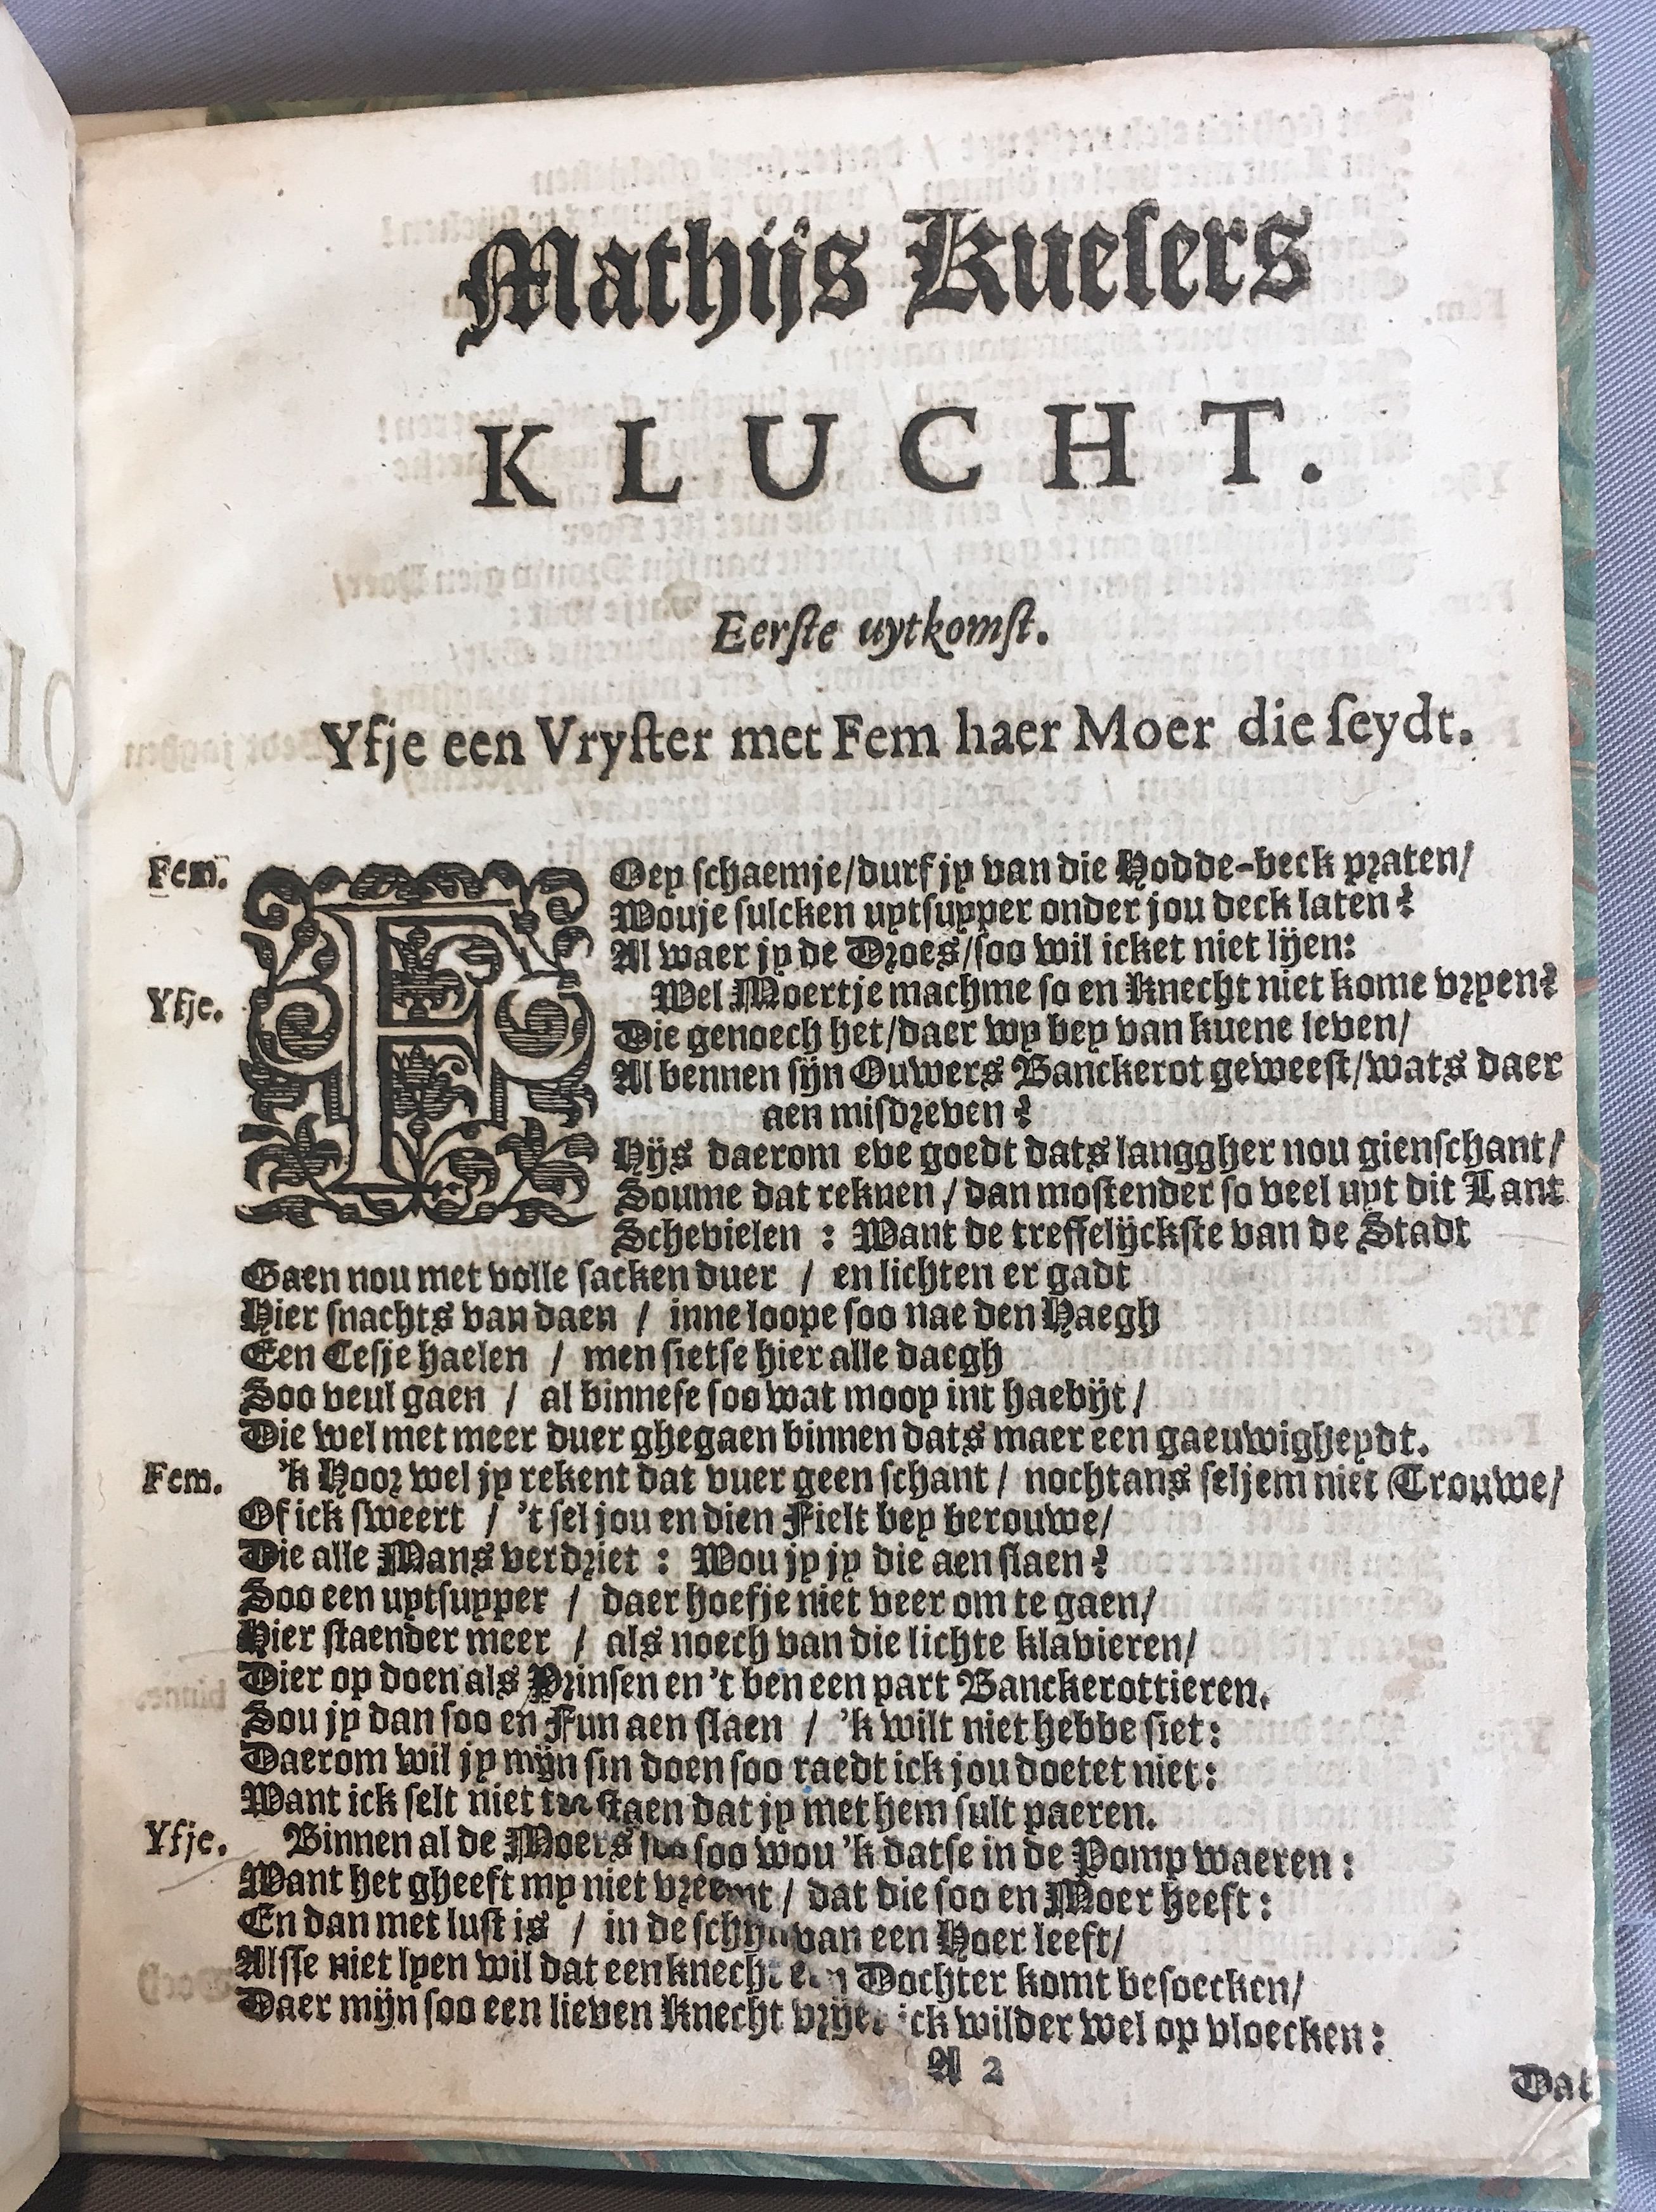 Mathijs Kuesers
KLUCHT.
Eerſte uytkomſt.
Yfje een Vryſter met Fem haer Moer die ſeydt.
Fem. FOey ſchaemje/durf jy van die Hodde-beck praten/
Wouje ſulcken uytſuyper onder jou deck laten?
Al waer jy de Droes/ſoo wil icket niet lijen:
Yfje. Wel Moertje machme ſo en Knecht niet kome vryen?
Die genoech het/daer wy bey van kuene leven/
Al bennen ſijn Ouwers Banckerot geweeſt/wats daer
aen miſdreven?
Hijs daerom eve goedt dats langgher nou gienſchant/
Soume dat reknen / dan moſtender ſo veel uyt dit Lant
Schevielen : Want de treffelijckſte van de Stadt
Gaen nou met volle ſacken duer / en lichten er gadt
Hier ſnachts van daen / inne loope ſoo nae den Haegh
Een Ceſje haelen / men ſietſe hier alle daegh
Soo veul gaen / al binneſe ſoo wat mooy int haebijt/
Die wel met meer duer ghegaen binnen dats maer een gaeuwigheydt.
Fem. 'k Hoor wel jy rekent dat vuer geen ſchant / nochtans ſeljem niet Trouwe/
Of ick ſweert / 't ſel jou en dien Fielt bey berouwe/
Die alle Mans verdriet : Wou jy jy die aen ſlaen?
Soo een uytſuyper / daer hoefje niet veer om te gaen/
Hier ſtaender meer / als noech van die lichte klavieren/
Dier op doen als Prinſen en 't ben een part Banckerottieren.
Sou jy dan ſoo en Fun aen ſlaen / 'k wilt niet hebbe ſiet:
Daerom wil jy mijn ſin doen ſoo raedt ick jou doetet niet:
Want ick ſelt niet ſtaen dat jy met hem ſult paeren.
Yfje. Binnen al de Moers ſoo ſoo wou 'k datſe in de Pomp waeren:
Want het gheeft my niet vreemt / dat die ſoo en Moer heeft:
En dan met luſt is / in de ſchijn van een Hoer leeft/
Alſſe niet lyen wil dat een knecht een Dochter komt beſoecken/
Daer mijn ſoo een lieven Knecht vrijet ick wilder wel op vloecken:
A 2
Dat